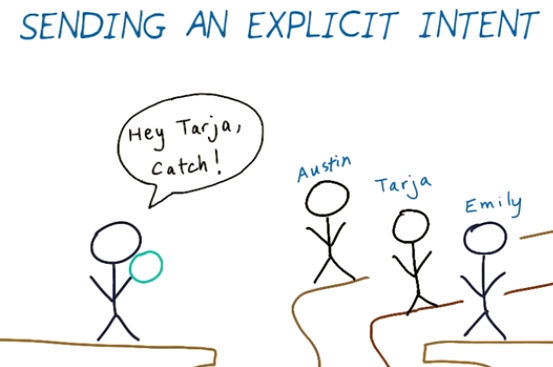 SENDING AN EXPLICIT INTENT
Hey Tarja,
Catch!
Austin
Tarja
Emily